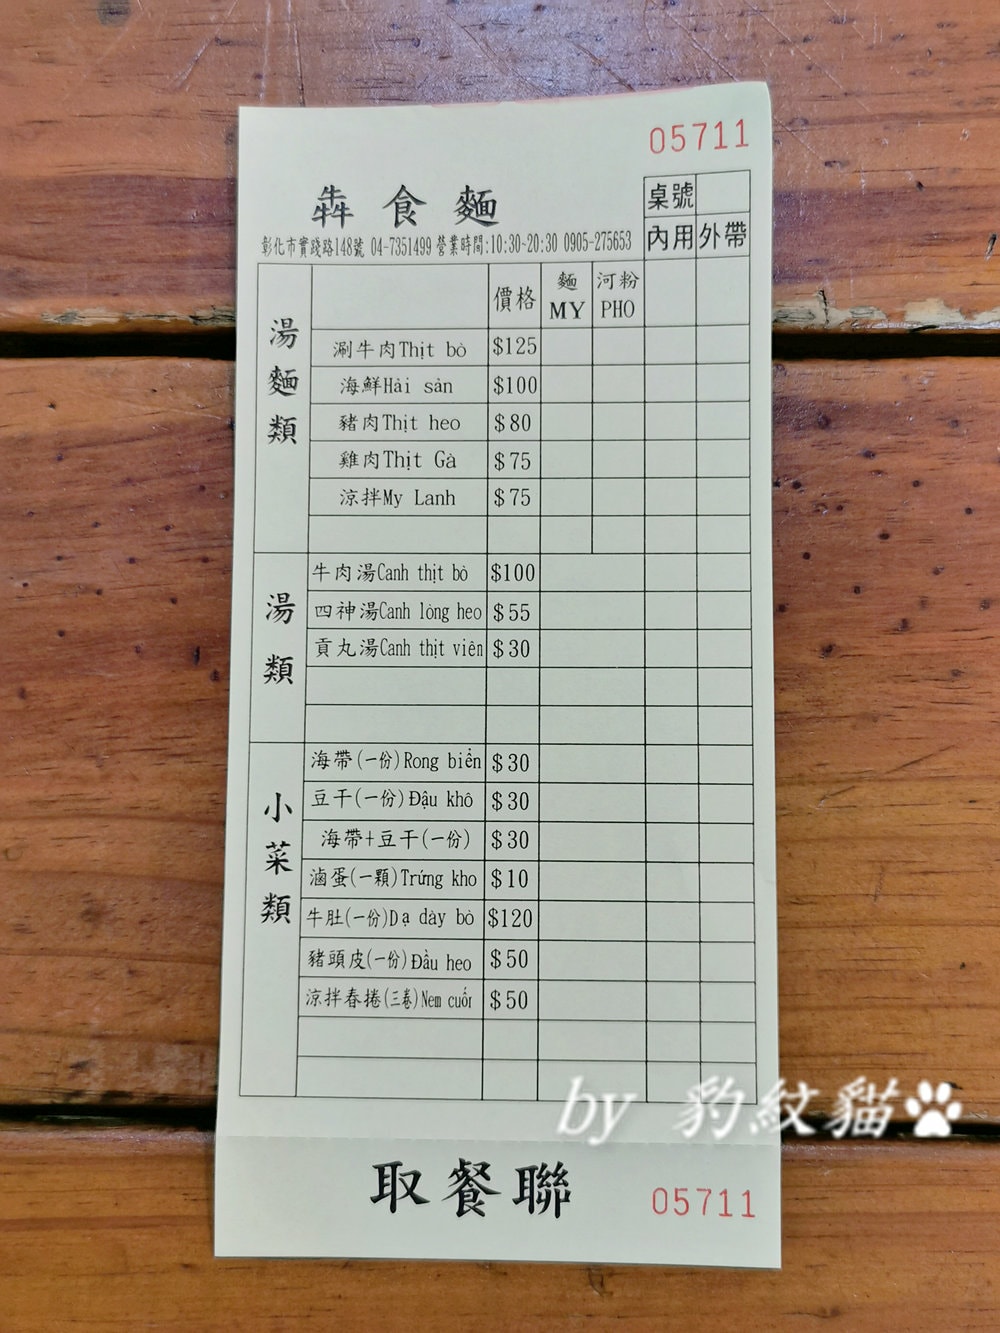 05711
犇食麵
桌號
彰化市實踐路148號 04-7351499 營業時間:10:30-20:30 0905-275653
內用 外帶
湯麵類
價格 麵MY 河粉PHO
涮牛肉Thịt bò $125
海鮮Hải sản $100
豬肉Thịt heo $80
雞肉Thịt Gà $75
涼拌My Lanh $75
湯類
牛肉湯Canh thịt bò $100
四神湯Canh lòng heo $55
貢丸湯Canh thịt viên $30
小菜類
海帶(一份)Rong biển $30
豆干(一份)Đậu khô $30
海帶+豆干(一份) $30
滷蛋(一顆)Trứng kho $10
牛肚(一份)Dạ dày bò $120
豬頭皮(一份)Đầu heo $50
涼拌春捲(三卷)Nem cuốn $50
by 豹紋貓
取餐聯 05711